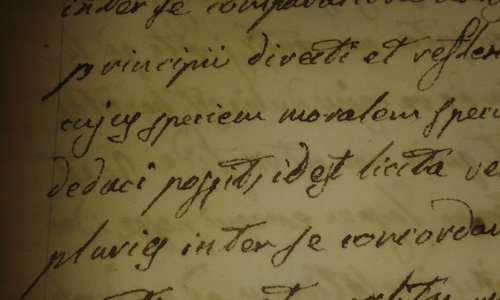 inter se
principii directi et reflex
cujus speciem moralem speci
deduci possit, id est licita ve
pluries inter se concordan